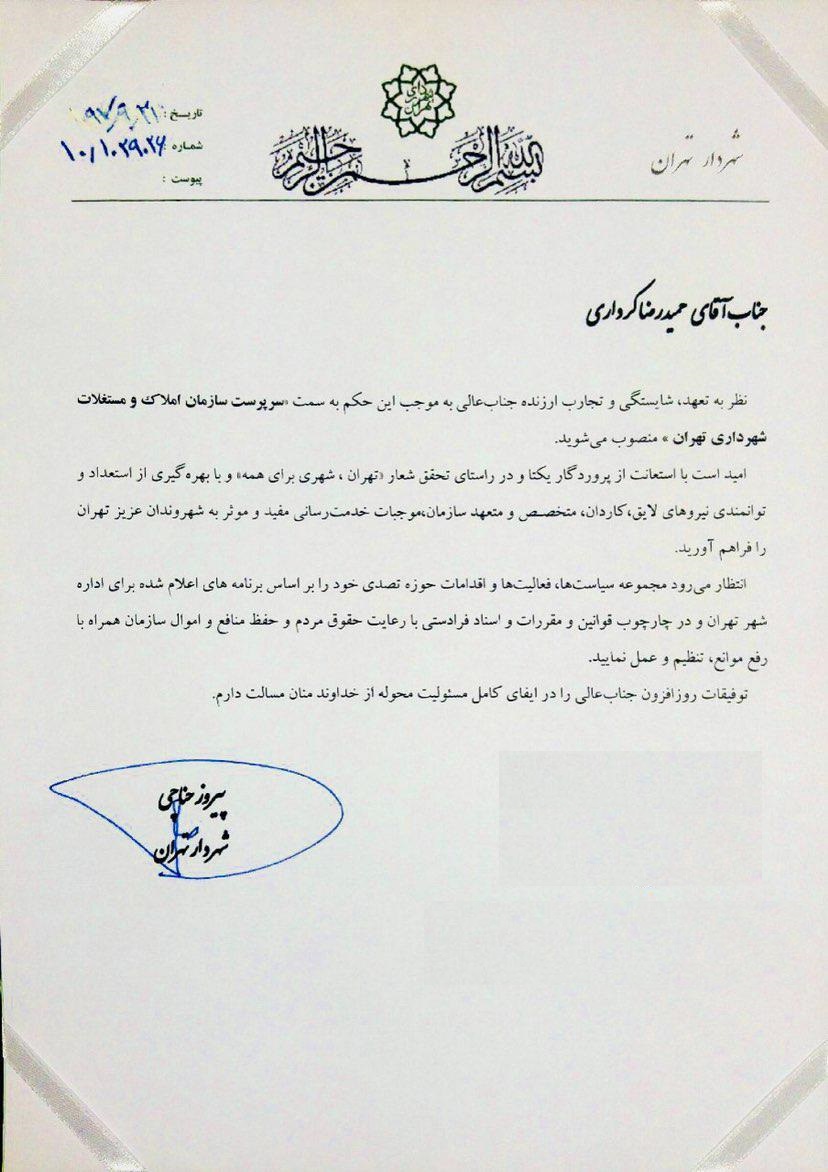 شهردار تهران
شهرداری تهران
بسم الله الرحمن الرحیم
تاریخ : ۹۷/۹/۳۱
شماره : ۱۰/۱۰۲۹۰۲۶
پیوست :
جناب آقای حمیدرضا کرداری
نظر به تعهد، شایستگی و تجارب ارزنده جناب‌عالی به موجب این حکم به سمت «سرپرست سازمان املاک و مستغلات
شهرداری تهران » منصوب می‌شوید.
امید است با استعانت از پروردگار یکتا و در راستای تحقق شعار «تهران ، شهری برای همه» و با بهره‌گیری از استعداد و
توانمندی نیروهای لایق،کاردان، متخصص و متعهد سازمان،موجبات خدمت‌رسانی مفید و موثر به شهروندان عزیز تهران
را فراهم آورید.
انتظار می‌رود مجموعه سیاست‌ها، فعالیت‌ها و اقدامات حوزه تصدی خود را بر اساس برنامه های اعلام شده برای اداره
شهر تهران و در چارچوب قوانین و مقررات و اسناد فرادستی با رعایت حقوق مردم و حفظ منافع و اموال سازمان همراه با
رفع موانع، تنظیم و عمل نمایید.
توفیقات روزافزون جناب‌عالی را در ایفای کامل مسئولیت محوله از خداوند منان مسالت دارم.
پیروز حناچی
شهردار تهران